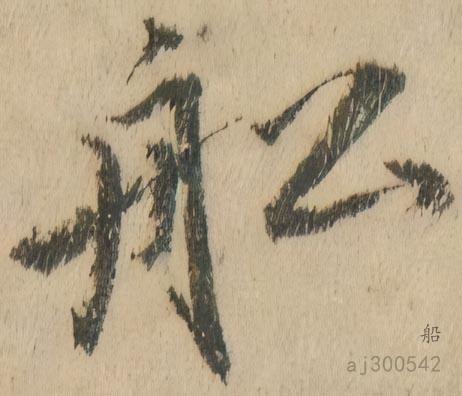 舩
船
aj300542